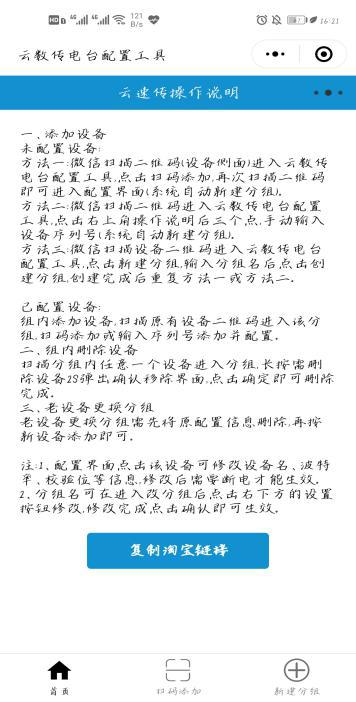 HD 4G 4G 121 B/s 16:21
云数传电台配置工具
云速传操作说明
一、添加设备
未配置设备:
方法一:微信扫描二维码(设备侧面)进入云数传
电台配置工具,点击扫码添加,再次扫描二维码
即可进入配置界面(系统自动新建分组)。
方法二:微信扫描二维码进入云数传电台配置
工具,点击右上角操作说明后三个点,手动输入
设备序列号(系统自动新建分组)。
方法三:微信扫描设备二维码进入云数传电台
配置工具,点击新建分组,输入分组名后,点击创
建分组,创建完成后重复方法一或方法二。
已配置设备:
组内添加设备,扫描原有设备二维码进入该分
组,扫码添加或输入序列号添加并配置。
二、组内删除设备
扫描分组内任意一个设备进入分组,长按需删
除设备2S弹出确认移除界面,点击确定即可删除
完成。
三、老设备更换分组
老设备更换分组需先将原配置信息删除,再按
新设备添加即可。
注:1、配置界面点击该设备可修改设备名、波特
率、校验位等信息,修改后需要断电才能生效。
2、分组名可在进入改分组后,点击右下方的设置
按钮修改,修改完成点击确认即可生效。
复制淘宝链接
首页
扫码添加
新建分组